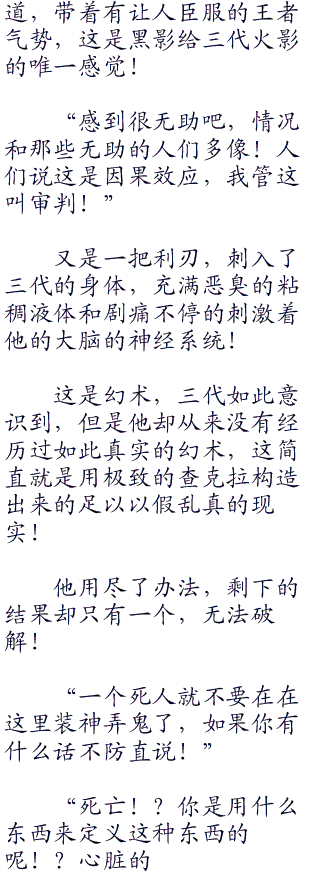 道，带着有让人臣服的王者
气势，这是黑影给三代火影
的唯一感觉！
“感到很无助吧，情况
和那些无助的人们多像！人
们说这是因果效应，我管这
叫审判！”
又是一把利刃，刺入了
三代的身体，充满恶臭的粘
稠液体和剧痛不停的刺激着
他的大脑的神经系统！
这是幻术，三代如此意
识到，但是他却从来没有经
历过如此真实的幻术，这简
直就是用极致的查克拉构造
出来的足以以假乱真的现
实！
他用尽了办法，剩下的
结果却只有一个，无法破
解！
“一个死人就不要在在
这里装神弄鬼了，如果你有
什么话不防直说！”
“死亡！？你是用什么
东西来定义这种东西的
呢！？心脏的